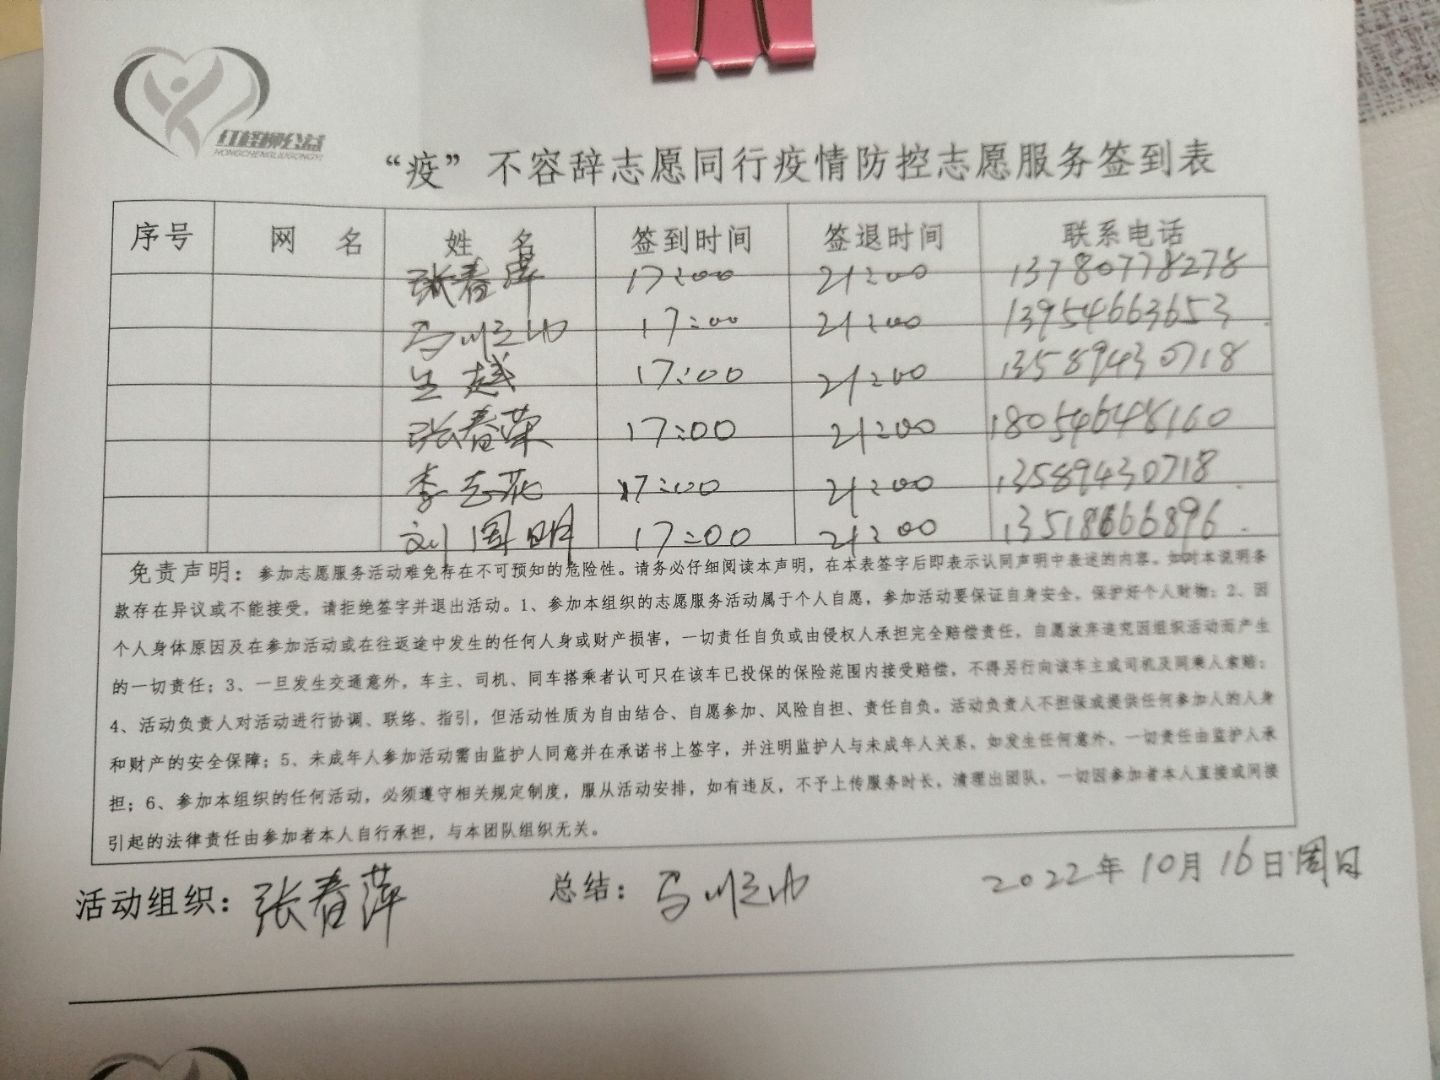 红柽柳公益
HONGCHENGLIUGONGYI
“疫”不容辞志愿同行疫情防控志愿服务签到表
序号 网 名 姓 名 签到时间 签退时间 联系电话
张春萍 17:00 21:00 13780778278
17:00 21:00 13954663653
王越 17:00 21:00 13589430718
张春荣 17:00 21:00 18054648160
李志花 17:00 21:00 13589430718
刘国明 17:00 21:00 13518666896
免责声明：参加志愿服务活动难免存在不可预知的危险性。请务必仔细阅读本声明，在本表签字后即表示认同声明中表述的内容。如对本说明条
款存在异议或不能接受，请拒绝签字并退出活动。1、参加本组织的志愿服务活动属于个人自愿，参加活动要保证自身安全，保护好个人财物；2、因
个人身体原因及在参加活动或在往返途中发生的任何人身或财产损害，一切责任自负或由侵权人承担完全赔偿责任，自愿放弃追究因组织活动而产生
的一切责任；3、一旦发生交通意外，车主、司机、同车搭乘者认可只在该车已投保的保险范围内接受赔偿，不得另行向该车主或司机及同乘人索赔；
4、活动负责人对活动进行协调、联络、指引，但活动性质为自由结合、自愿参加、风险自担、责任自负。活动负责人不担保或提供任何参加人的人身
和财产的安全保障；5、未成年人参加活动需由监护人同意并在承诺书上签字，并注明监护人与未成年人关系，如发生任何意外，一切责任由监护人承
担；6、参加本组织的任何活动，必须遵守相关规定制度，服从活动安排，如有违反，不予上传服务时长，清理出团队，一切因参加者本人直接或间接
引起的法律责任由参加者本人自行承担，与本团队组织无关。
活动组织：张春萍 总结： 2022年10月16日周日